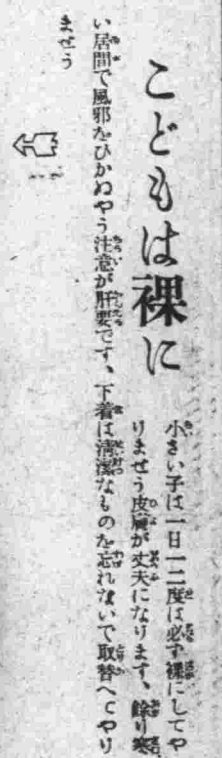 こどもは裸に
小さい子は一日一二度は必ず裸にしてや
りませう皮膚が丈夫になります、餘り寒
い居間で風邪をひかぬやう注意が肝要です、下着は清潔なものを忘れないで取替へてやり
ませう